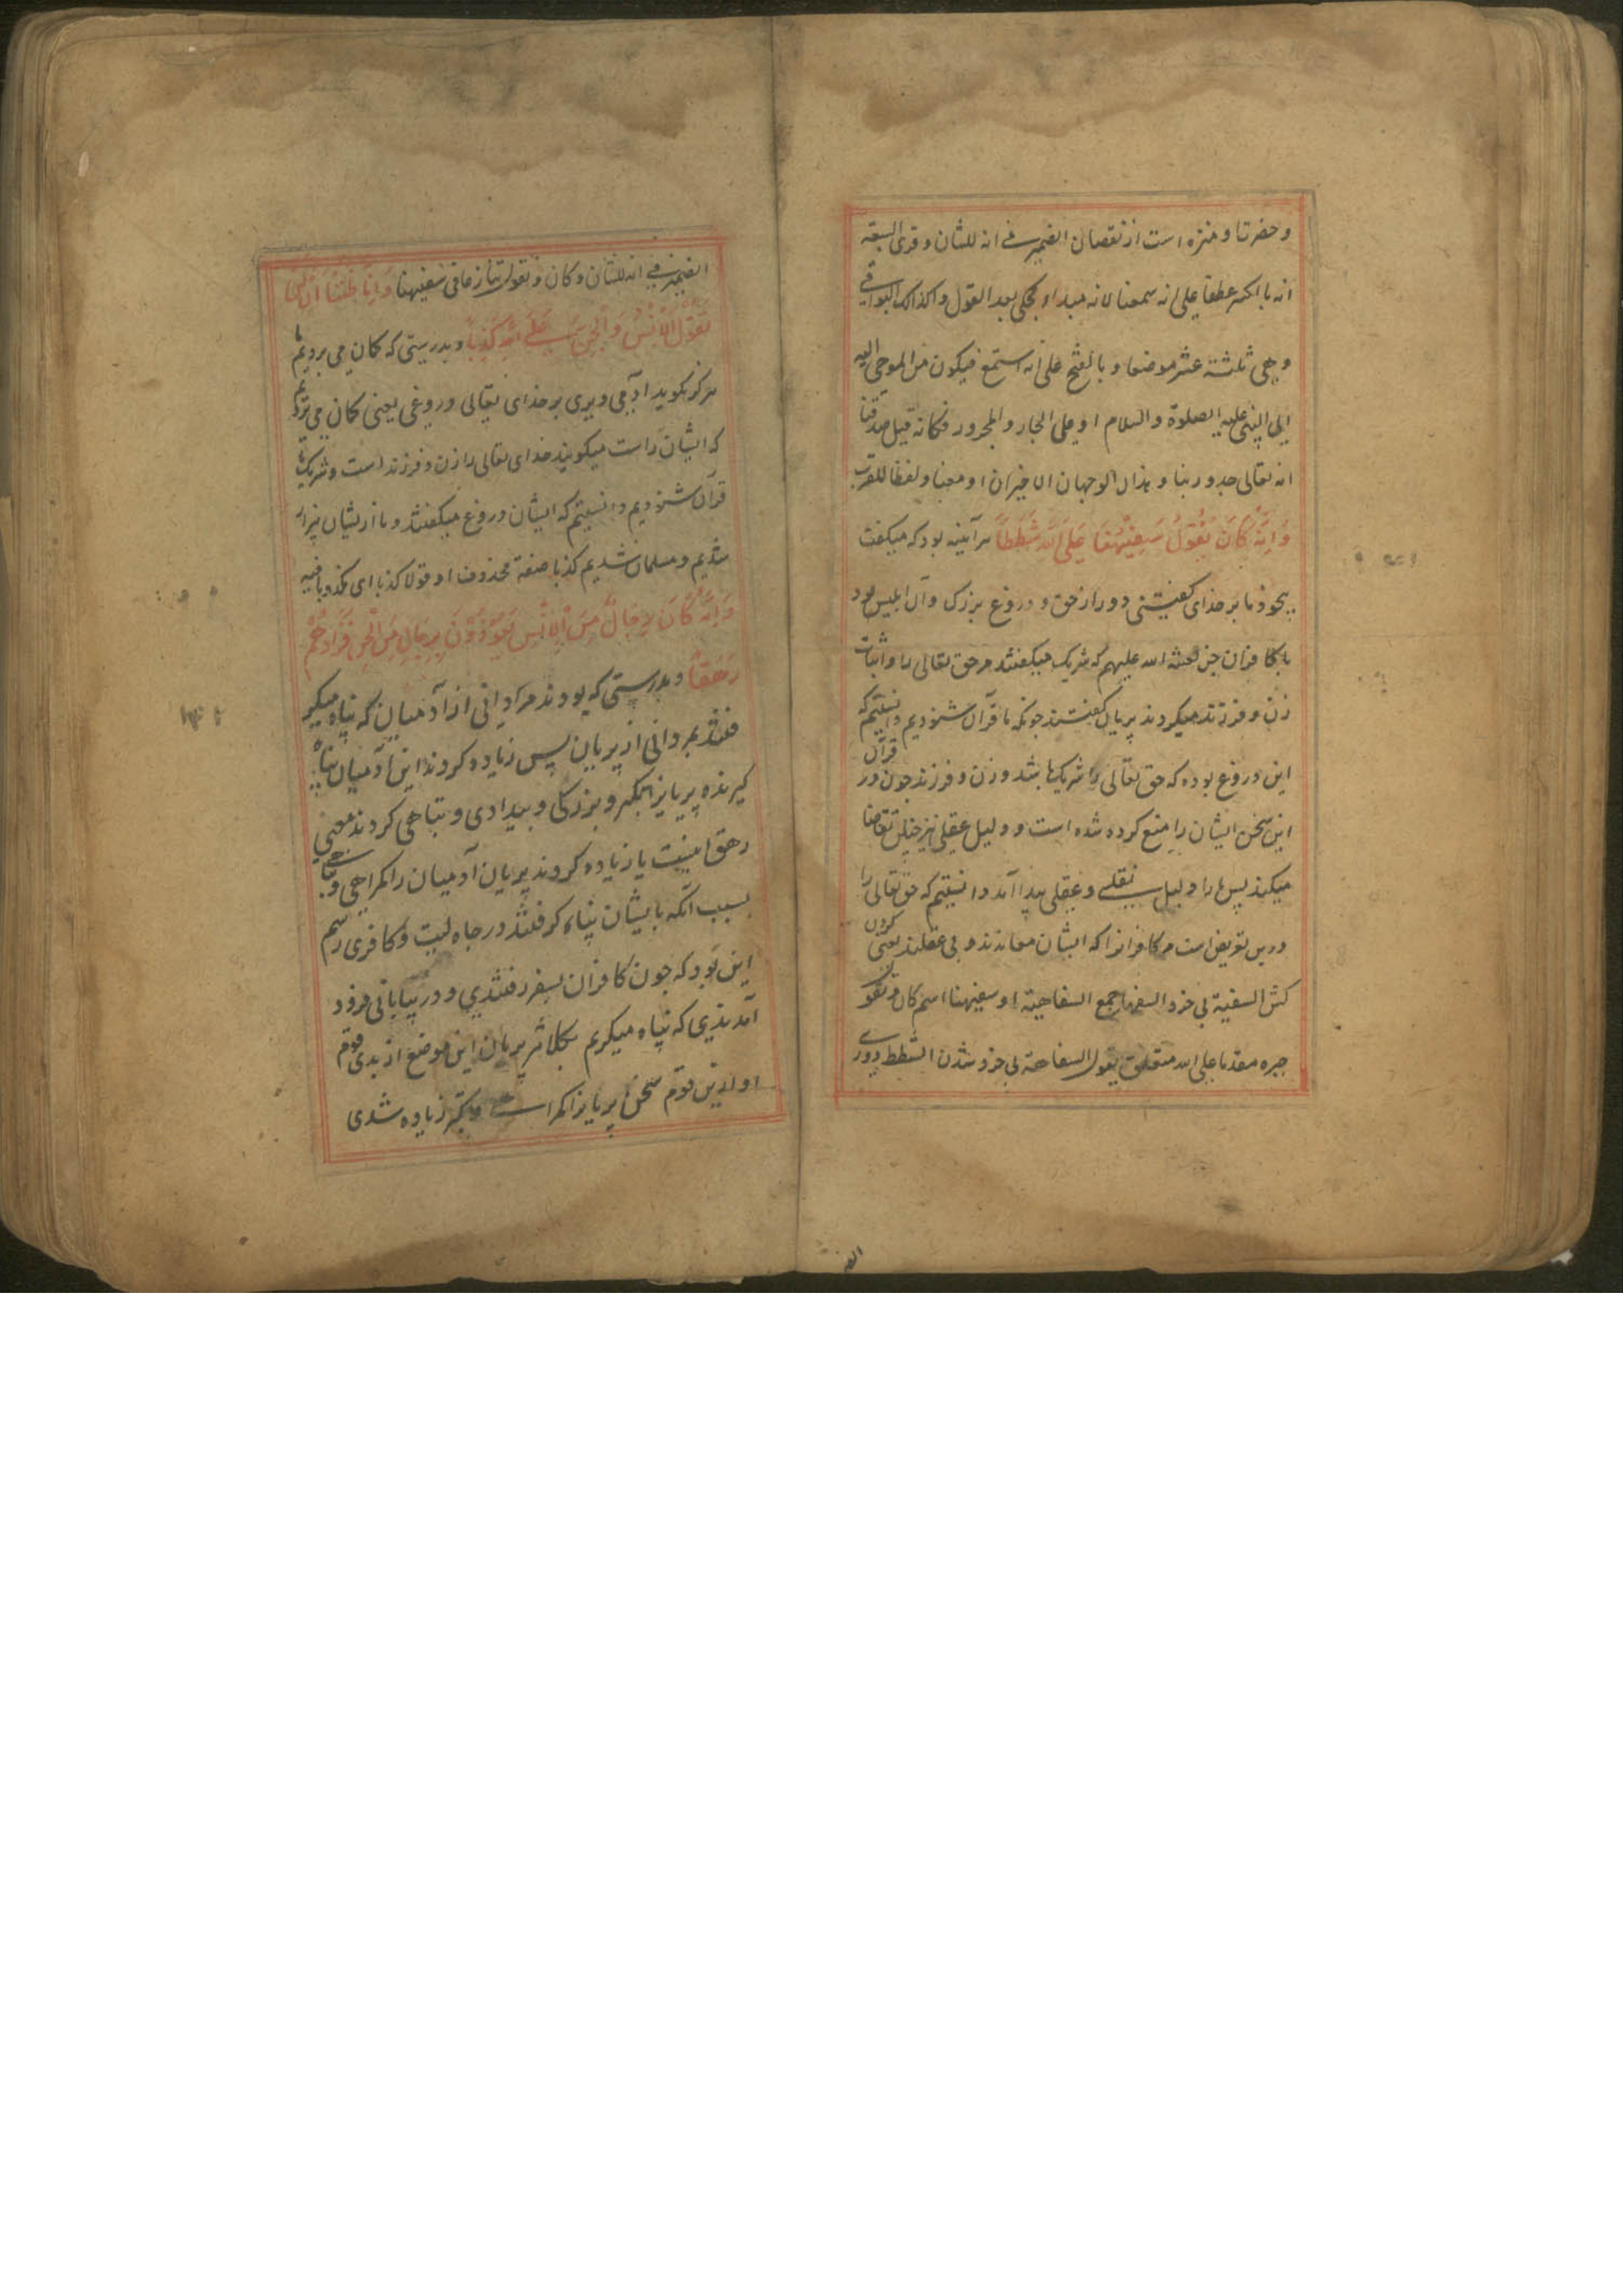 و حضرتا و منزه است از نقصان الضمیر فی انه للشان و قری السبعة
انه بالکسر عطفا علی انه سمعنا لانه مبداء محکی بعد القول وکذالک البواقی
و هی ثلثة عشر موضعا و بالفتح علی انه استمع فیکون من الموحی الیه
الی النبی علیه الصلوة والسلام او علی الجار والمجرور فکانه قیل صدقنا
انه تعالی جد ربنا و هذان الوجهان الاخیران او معنا و لفظا للقرب
وَاَنَّهُ كَانَ يَقُولُ سَفِيهُنَا عَلَى اللهِ شَطَطًا هر آئینه بود که میگفت
بیخود ما بر خدای گفتنی دور از حق و دروغ بزرک و آن ابلیس بود
با کافران جن لعنة الله علیهم که شریک میگفتند مر حق تعالی را و اثبات
زن و فرزند میکردند پریان گفتند چونکه ما قرآن شنودیم دانستیم که
این دروغ بوده که حق تعالی را شریک باشد و زن و فرزند چون در قرآن
این سخن ایشان را منع کرده شده است و دلیل عقلی نیز چنین تقاضا
میکند پس ما را دلیل نقلی و عقلی پیدا آمد دانستیم که حق تعالی را
درین تعریض است مر کافرانرا که ایشان معاندند و بی عقلند یعنی کردن
کش السفیه بی خرد السفها جمع السفاهیة او سفیهنا اسم کان و یقول
خبره مقدما علی الله متعلق یقول السفاهة بی خرد شدن الشطط دوری
الضمیر فی انه للشان و کان و یقول تنازعا فی سفیهنا وَاَنَّا ظَنَنَّا اَنْ لَنْ
تَقُولَ الْاِنْسُ وَالْجِنُّ عَلَى اللهِ كَذِبًا و بدرستی که کمان می بردیم ما
هرکز نکوید آدمی و پری بر خدای تعالی دروغی یعنی کمان می بردیم
که ایشان راست میکویند خدای تعالی را زن و فرزند است و شریک تا
قرآن شنودیم دانستیم که ایشان دروغ میکفتند و ما از ایشان بیزار
شدیم و مسلمان شدیم کذبا صفة محذوف او قولا کذبا ای مکذوبا فیه
وَاَنَّهُ كَانَ رِجَالٌ مِنَ الْاِنْسِ يَعُوذُونَ بِرِجَالٍ مِنَ الْجِنِّ فَزَادُوهُمْ
رَهَقًا و بدرستی که بودند مردانی از آدمیان که پناه میکر
فتند بمردانی از پریان پس زیاده کردند این آدمیان پناه
کیرنده پریانرا تکبر و بزرکی و بیدادی و تباهی کردند معنی
رهق اینست یا زیاده کردند پریان آدمیان را کمراهی و تباهی
بسبب آنکه بایشان پناه کرفتند در جاهلیت و کافری رسم
این بود که چون کافران بسفر رفتندی و در بیابانی فرود
آمدندی که پناه میکریم بکلانتر پریان این موضع از بدی قوم
او ازین قوم سخن پریانرا کمراهی و تکبر زیاده شدی